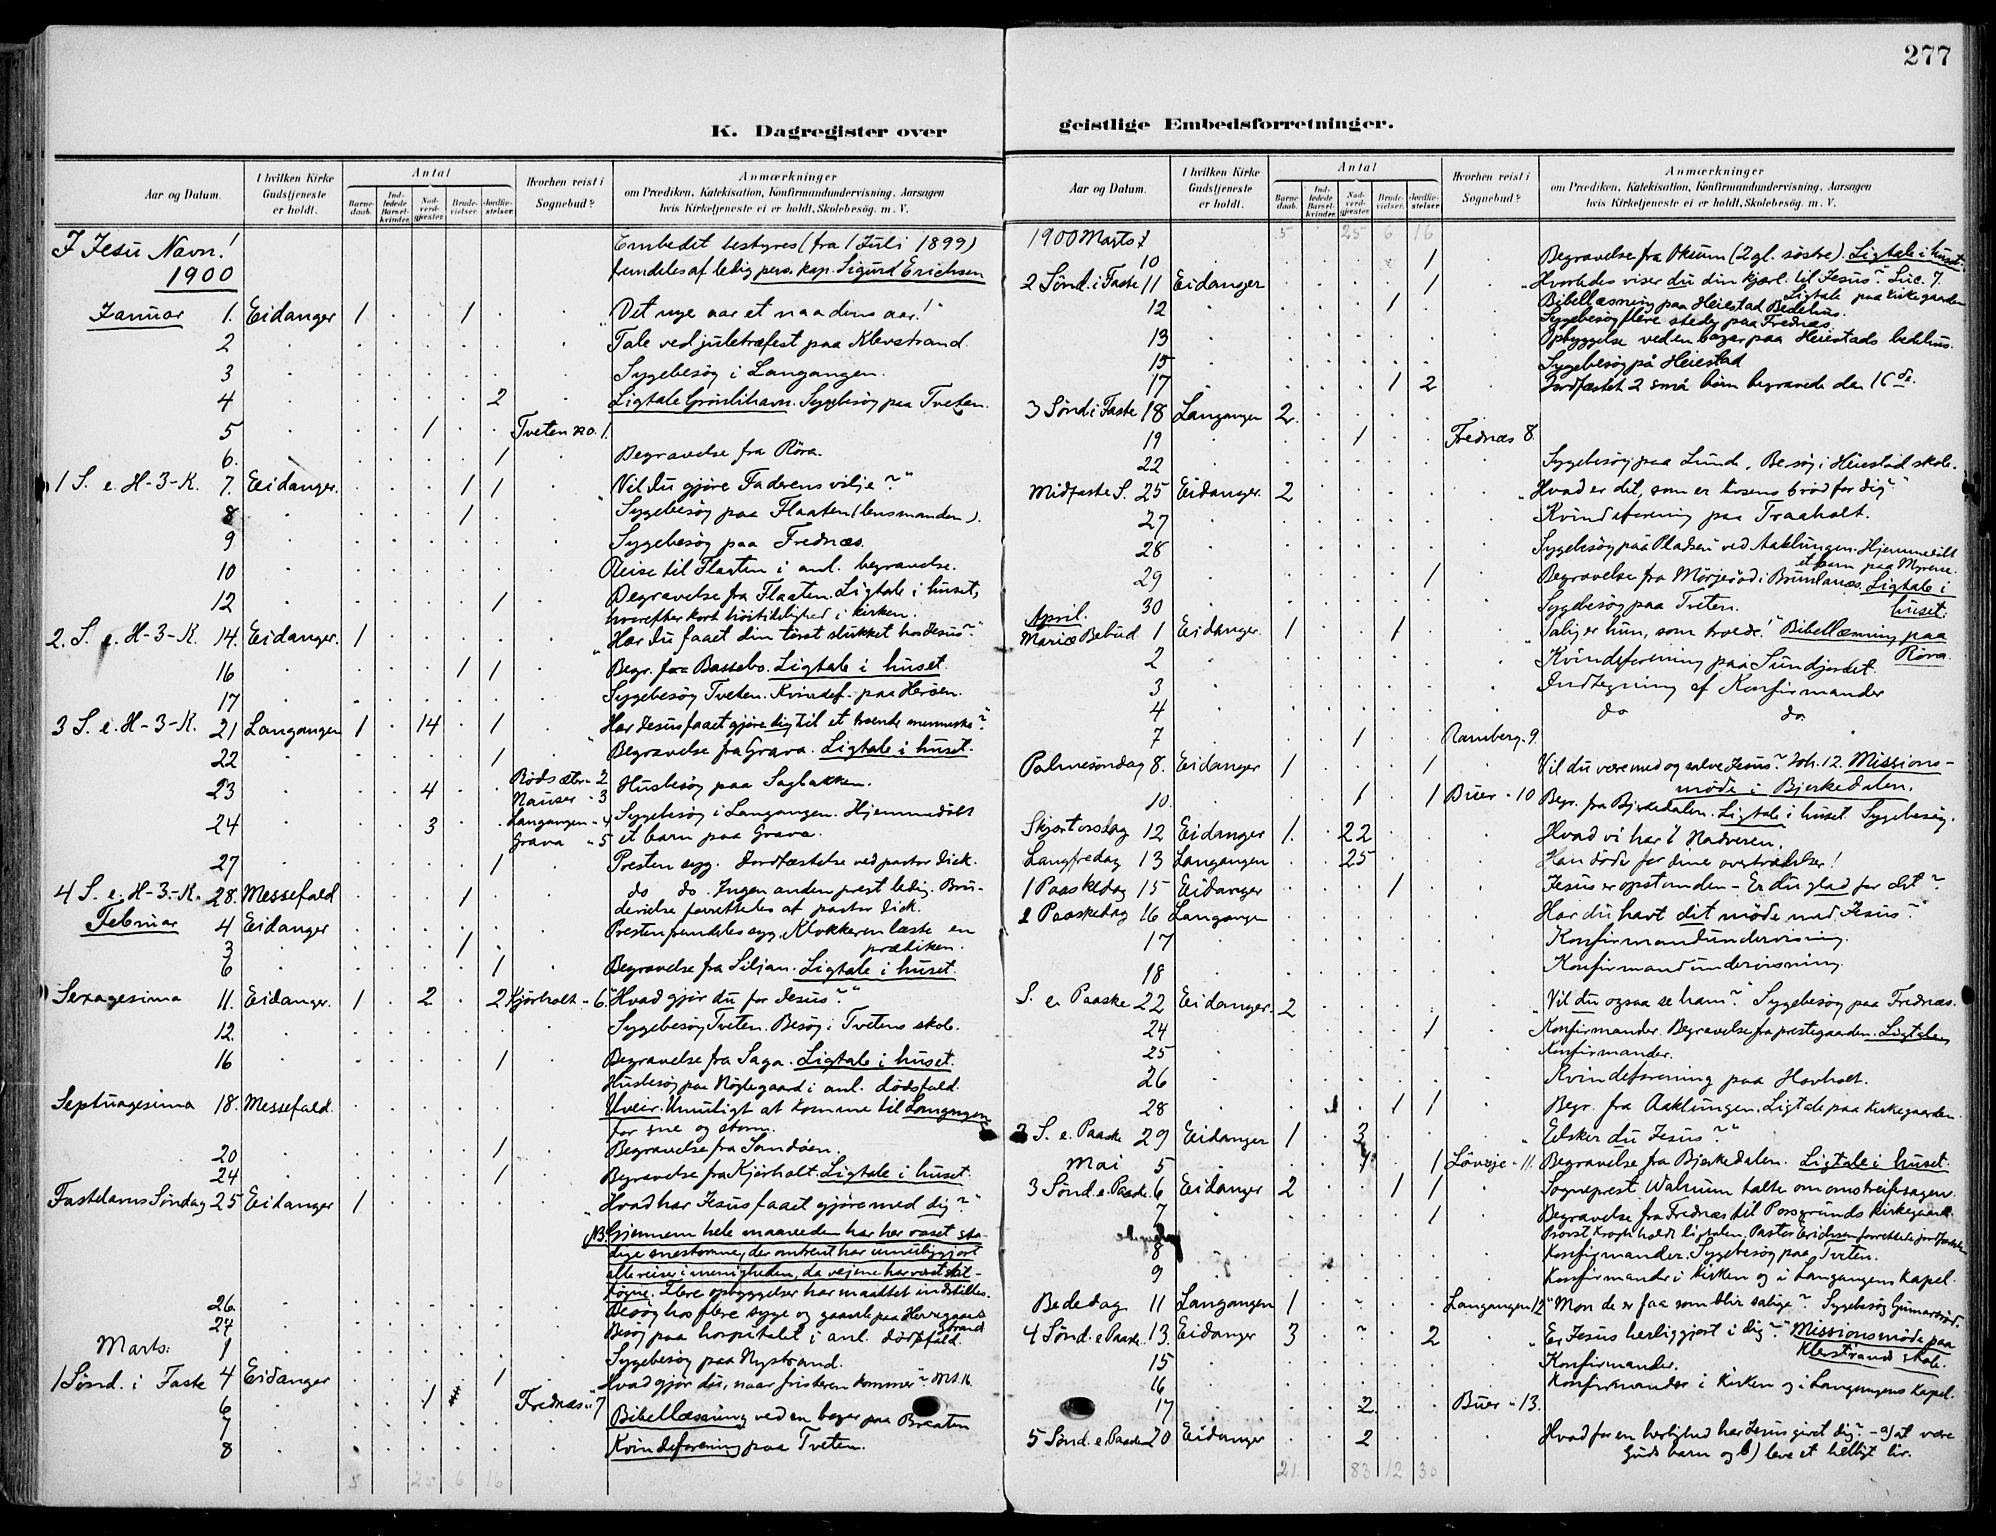 277
K. Dagregister over
geistlige Embedsforretninger.
Aar og Datum.
I hvilken Kirke Gudstjeneste er holdt.
Antal
Barne-daab.
Ind-ledede Barsel-kvinder.
Nad-verd-gjester.
Brude-vielser.
Jordfæ-stelser.
Hvorhen reist i Sognebud?
Anmærkninger
om Prædiken, Katekisation, Konfirmandundervisning, Aarsagen
hvis Kirketjeneste ei er holdt, Skolebesøg. m. V.
I Jesu Navn! Embedet bestyres (fra 1 Juli 1899)
1900 fremdeles af ledig pers. kap. Sigurd Erichsen
Januar 1. Eidanger 1 1 "Det nye aar et naadens aar!"
2 Tale ved juletræfest paa Klevstrand.
3 Sygebesøg i Langangen.
4 2 Ligtale Grønlihavn. Sygebesøg paa Tveten.
5 1 Tveten no. 1.
6. 1 Begravelse fra Röra.
1 S. e. H-3-K. 7. Eidanger. 1 1 "Vil du gjøre Faderens vilje?"
8 1 Sygebesøg paa Flaaten (lensmanden).
9 Sygebesøg paa Frednæs.
10 Reise til Flaaten i anl. begravelse.
12 1 Begravelse fra Flaaten. Ligtale i huset,
hvorefter kort höitidelighed i kirken.
2. S. e. H-3-K. 14. Eidanger. 1 "Har du faaet din törst slukket hos Jesus?"
16 1 1 Begr. fra Bassebo. Ligtale i huset.
17 Sygebesøg Tveten. Kvindef. paa Herøen.
3 S. e. H-3-K. 21 Langangen 1 14 1 "Har Jesus faaet gjøre dig til et troende menneske?"
22 1 Begravelse fra Grava. Ligtale i huset.
23 4 Rødsæter - 2 Husbesøg paa Sagbakken.
Nauser - 3
24 3 Langangen - 4 Sygebesøg i Langangen. Hjemmedöbt
Grava " 5 et barn paa Grava.
27 1 Presten syg. Jordfæstelse ved pastor Dick.
4 S. e. H-3-K. 28. Messefald 1 do do. Ingen anden prest ledig. Bru-
devielse forrettedes af pastor Dick.
Februar 4 Eidanger Presten fremdeles syg. Klokkeren læste en
3 1 prædiken.
6 1 Begravelse fra Siljan. Ligtale i huset.
Sexagesima 11. Eidanger. 1 2 2 Kjørholt - 6. "Hvad gjör du for Jesus?"
12. Sygebesøg Tveten. Besøg i Tvetens skole.
16 1 Begravelse fra Saga. Ligtale i huset.
Husbesøg paa Nøglegaard i anl. dödsfald.
Septuagesima 18. Messefald. Uveir. Umuligt at komme til Langangen
for sne og storm.
20 1 Begravelse fra Sandöen.
24 1 Begravelse fra Kjørholt. Ligtale i huset.
Fastelavns Søndag 25 Eidanger 1 "Hvad har Jesus faaet gjøre med dig?"
NB. Gjennem hele maaneden har her raset sta-
dige snestorme, der omtrent har umuliggjort
alle reiser i menigheden, da veiene har været
Flere opbyggelser har maattet indstilles.
26. Besøg hos flere syge og gamle paa Herregaards
strand
24 Besøg paa hospitalet i anl. dödsfald.
Marts: 1 Sygebesøg paa Nystrand.
1 Sönd. i Faste 4 Eidanger 1 Hvad gjør du, naar fristeren kommer?
6 1 Frednæs " 7
7 Bibellæsning ved en bazar paa Braaten
8 Kvindeforening paa Tveten.
5 25 6 16
Aar og Datum.
I hvilken Kirke Gudstjeneste er holdt.
Antal
Barne-daab.
Ind-ledede Barsel-kvinder.
Nad-verd-gjester.
Brude-vielser.
Jordfæ-stelser.
Hvorhen reist i Sognebud?
Anmærkninger
om Prædiken, Katekisation, Konfirmandundervisning, Aarsagen
hvis Kirketjeneste ei er holdt, Skolebesøg. m. V.
1900 Marts: 5 25 6 16
10 1 Begravelse fra Økum (2 gl. søstre). Ligtale i huset.
2 Sønd. i Faste 11 Eidanger 1 "Hvorledes viser du din kjærl. til Jesus?" Luc. 7.
Ligtale paa kirkegaarden
12 1 Bibellæsning paa Heiestad Bedehus.
Sygebesøg flere steder paa Frednæs.
13 Opbyggelse ved en bazar paa Heiestads bedehus.
15 Sygebesøg på Heiestad
17 1 2 Jordfæstet 2 små børn begravede den 16de.
3 Sønd i Faste 18 Langangen 2.
19 1 Frednæs 8.
22 Sygebesøg paa Lunde. Besøg i Heiestad skole.
Midfaste S. 25 Eidanger. 2 "Hvad er det, som er livsens brød for dig?"
27 Kvindeforening paa Traaholt.
28 Sygebesøg paa Pladsen ved Aaklungen. Hjemmedöbt
et barn paa Myrene.
29 1 Begravelse fra Mörjeröd i Brunlanæs. Ligtale i
huset.
30 Sygebesøg paa Tveten.
April.
Mariæ Bebud 1 Eidanger. 1 1 "Salig er hun, som troede!" Bibellæsning paa
Röra.
2 Kvindeforening paa Sundjordet.
3 Indtegning af Konfirmander
4 do do
7 1 Ramberg - 9.
Palmesöndag 8. Eidanger 1 1 Vil du være med og salve Jesus? Joh. 12. Missions-
møde i Bjerkedalen.
10. 1 1 Buer - 10 Begr. fra Bjerkedalen. Ligtale i huset. Sygebesøg.
Skjærtorsdag 12 Eidanger 1. 22 Hvad vi har i Nadveren.
Langfredag 13 Langangen 25 Han döde for dine overtrædelser!
1 Paaskedag 15 Eidanger 1 Jesus er opstanden - Er du glad for det?
2 Paaskedag 16 Langangen Har du havt dit möde med Jesus?
17 Konfirmandundervisning.
18 Konfirmandundervisning.
S. e. Paaske 22 Eidanger. 2 "Vil du ogsaa se ham?" Sygebesøg paa Frednæs.
24 1 Konfirmander. Begravelse fra prestegaarden. Ligtalen
25 Konfirmander.
26 Kvindeforening paa Hovholt.
28 1 1 Begr. fra Aaklungen. Ligtale paa kirkegaarden.
2 S. e. Paaske 29 Eidanger 1 3 "Elsker du Jesus?"
Mai 5 1 1 Lövsjø - 11. Begravelse fra Bjerkedalen. Ligtale i huset.
3 Sønd. e. Paaske. 6 Eidanger 2 1 1 Sogneprest Walnum talte om omstreifersagen.
7 1 Begravelse fra Frednæs til Porsgrunds kirkegaard.
Provst Krogh holdt ligtalen. Pastor Erichsen forrettede jordfæstelsen
8 Konfirmander. Sygebesøg paa Tveten.
9 Konfirmander i kirken og i Langangens kapel.
Bededag 11 Langangen 1 Langangen 12 "Mon de er faa som blir salige?" Sygebesøg Gunnarsröd.
4 Sønd. e. Paaske. 13. Eidanger 3 2 "Er Jesus herliggjort i dig?" Missionsmöde paa
Klevstrand skole.
15 Konfirmander.
16 Konfirmander i kirken og i Langangens kapel.
17 2. Buer - 13.
5 Sønd. e. Paaske 20 Eidanger 2 Hvad for en herlighed har Jesus givet dig? - a) at være
Guds barn og b) leve et helligt liv.
21. 83 12 30